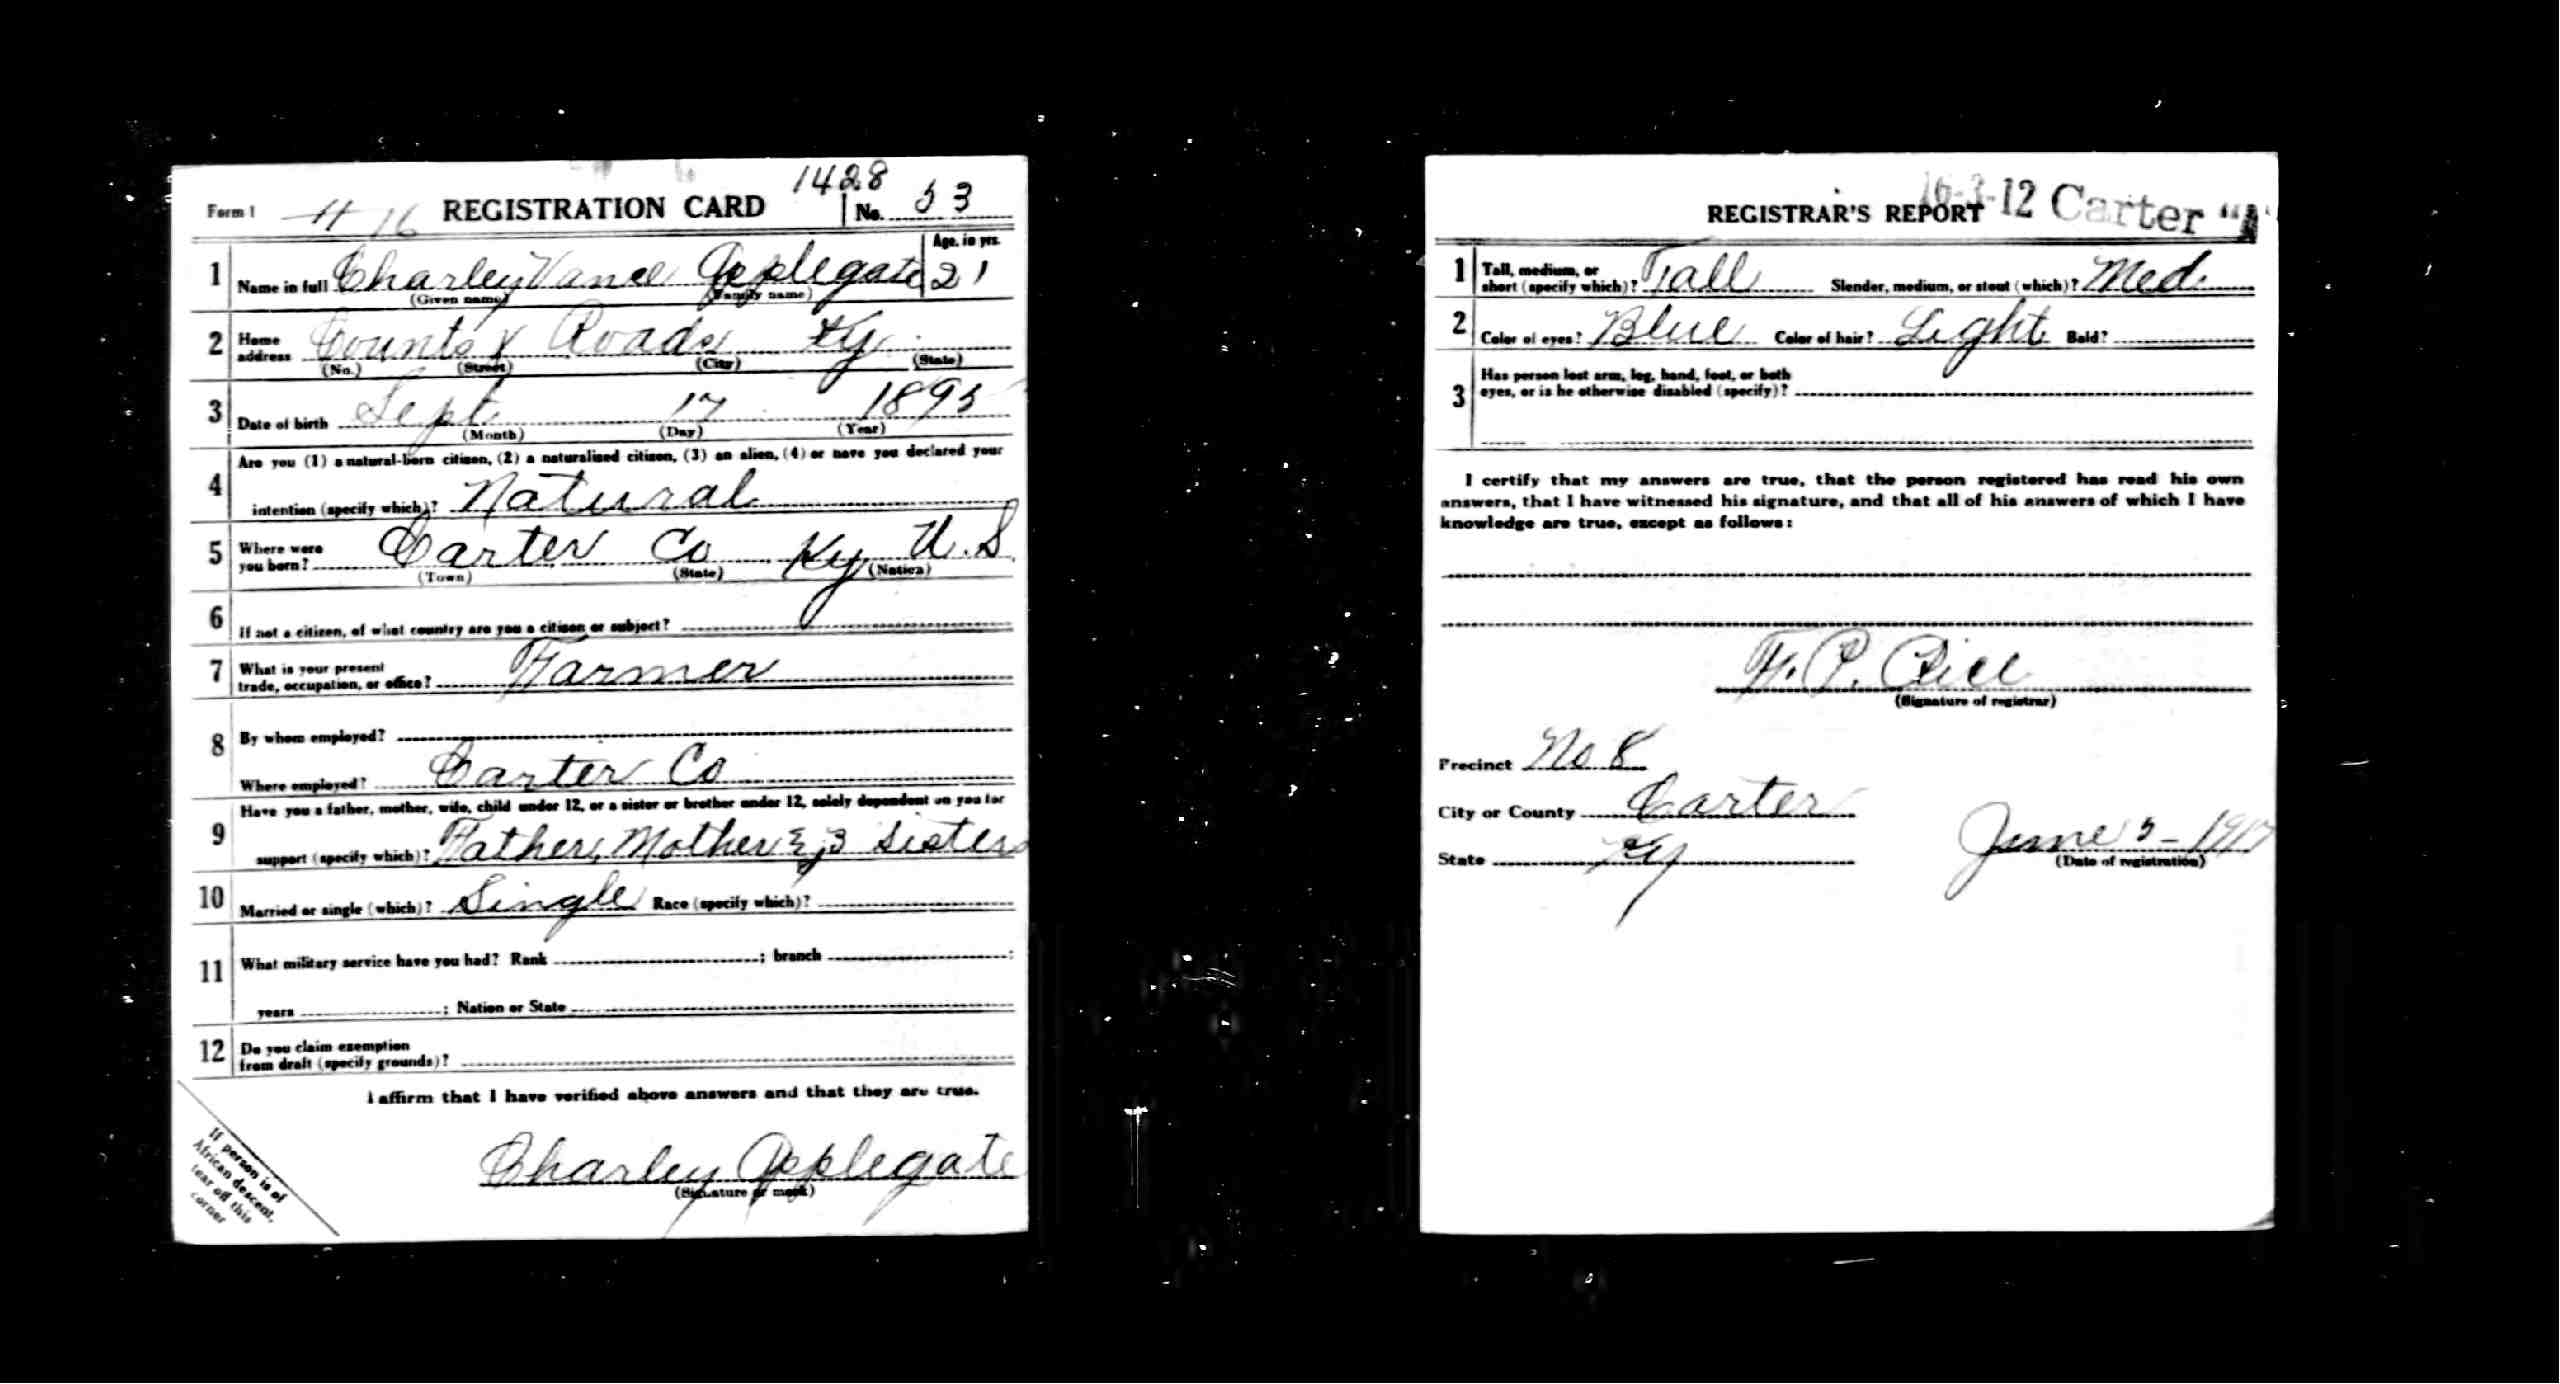 1428
Form 1 4 16 REGISTRATION CARD No. 53
1 Name in full Charley Vance Applegate Age, in yrs. 21
(Given name) (Family name)
2 Home address Counts X Roads Ky
(No.) (Street) (City) (State)
3 Date of birth Sept 17 1895
(Month) (Day) (Year)
4 Are you (1) a natural-born citizen, (2) a naturalized citizen, (3) an alien, (4) or have you declared your
intention (specify which)? Natural
5 Where were you born? Carter Co Ky U.S
(Town) (State) (Nation)
6 If not a citizen, of what country are you a citizen or subject?
7 What is your present
trade, occupation, or office? Farmer
8 By whom employed?
Where employed? Carter Co
9 Have you a father, mother, wife, child under 12, or a sister or brother under 12, solely dependent on you for
support (specify which)? Father, Mother & 3 Sisters
10 Married or single (which)? Single Race (specify which)?
11 What military service have you had? Rank ; branch ;
years ; Nation or State
12 Do you claim exemption
from draft (specify grounds)?
I affirm that I have verified above answers and that they are true.
Charley Applegate
(Signature or mark)
If person is of
African descent,
tear off this
corner
16-3-12 Carter "A"
REGISTRAR'S REPORT
1 Tall, medium, or
short (specify which)? Tall Slender, medium, or stout (which)? Med
2 Color of eyes? Blue Color of hair? Light Bald?
3 Has person lost arm, leg, hand, foot, or both
eyes, or is he otherwise disabled (specify)?
I certify that my answers are true, that the person registered has read his own
answers, that I have witnessed his signature, and that all of his answers of which I have
knowledge are true, except as follows:
F. P. Rice
(Signature of registrar)
Precinct No 8
City or County Carter
State Ky June 5-1917
(Date of registration)